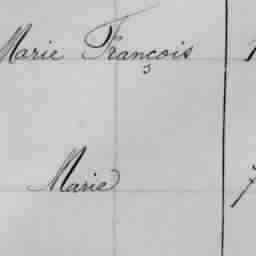 Marie François
Marie